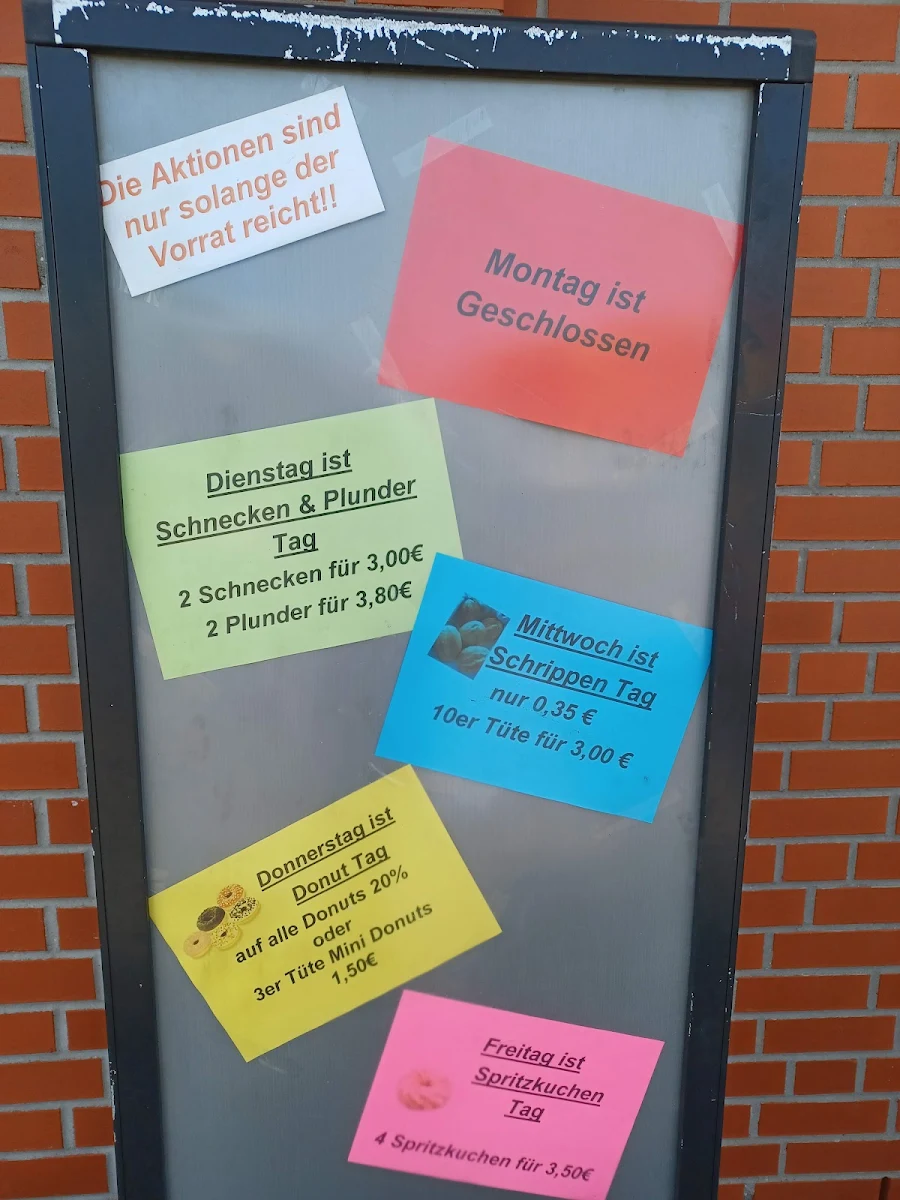 Die Aktionen sind
nur solange der
Vorrat reicht!!
Montag ist
Geschlossen
Dienstag ist
Schnecken & Plunder
Tag
2 Schnecken für 3,00€
2 Plunder für 3,80€
Mittwoch ist
Schrippen Tag
nur 0,35 €
10er Tüte für 3,00 €
Donnerstag ist
Donut Tag
auf alle Donuts 20%
oder
3er Tüte Mini Donuts
1,50€
Freitag ist
Spritzkuchen
Tag
4 Spritzkuchen für 3,50€